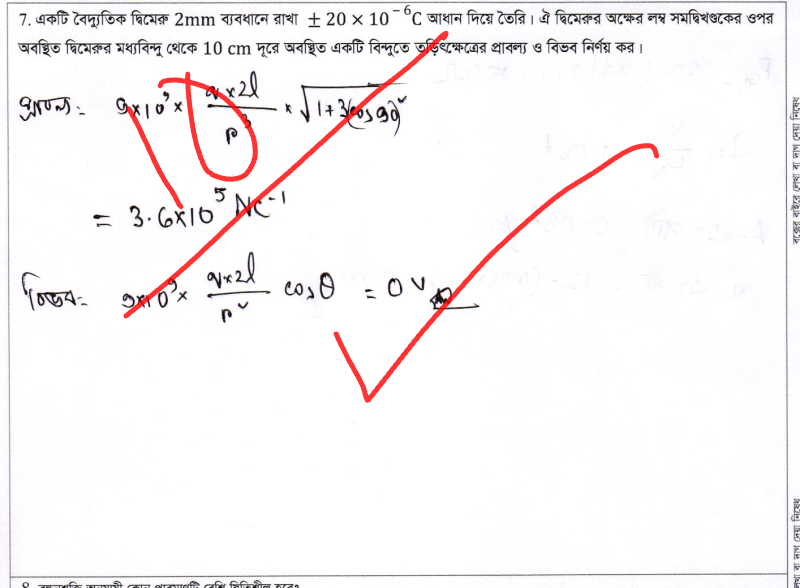 7. একটি বৈদ্যুতিক দ্বিমেরু 2mm ব্যবধানে রাখা ± 20 × 10⁻⁶C আধান দিয়ে তৈরি। ঐ দ্বিমেরুর অক্ষের লম্ব সমদ্বিখণ্ডকের ওপর
অবস্থিত দ্বিমেরুর মধ্যবিন্দু থেকে 10 cm দূরে অবস্থিত একটি বিন্দুতে তড়িৎক্ষেত্রের প্রাবল্য ও বিভব নির্ণয় কর।
প্রাবল্য:- 9×10⁹ × q×2l / r³ × √1+3(cos90)²
= 3.6×10⁵ NC⁻¹
বিভব:- 9×10⁹ × q×2l / r² cosθ = 0 V
বক্সের বাইরে লেখা বা দাগ দেয়া নিষেধ